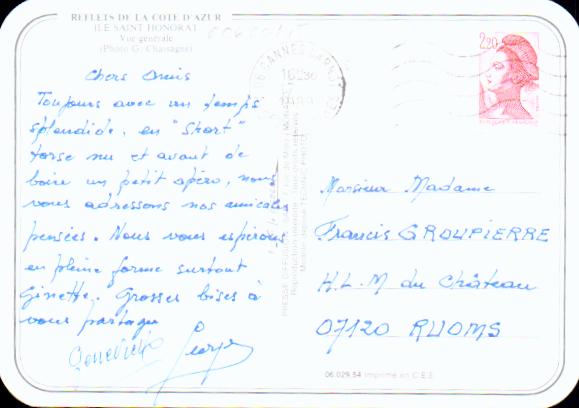 REFLETS DE LA COTE D'AZUR
ILE SAINT HONORAT
Vue générale
(Photo G. Chassagne)
Chers Amis
Toujours avec un temps
splendide, en "Short"
torse nu et avant de
boire un petit apéro, nous
vous adressons nos amicales
pensées. Nous vous espérons
en pleine forme surtout
Ginette. Grosses bises à
vous partager
Geneviève Georges
CANNES
16H30
2,20
Monsieur Madame
Francis GROUPIERRE
H.L.M du Château
07120 RUOMS
06.029.54 Imprimé en C.E.E.